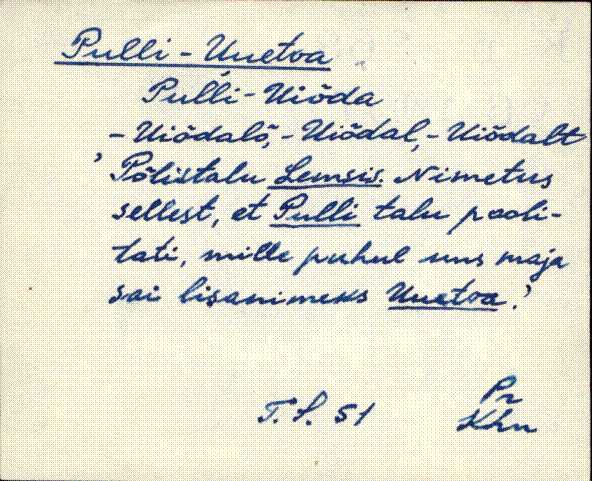 Pulli-Uuetoa
Pulli-Uiõda
-Uiõdalõ, -Uiõdal, -Uiõdalt
'Põlistalu Lemsis. Nimetus
sellest, et Pulli talu pooli-
tati, mille puhul uus maja
sai lisanimeks Uuetoa.'
T. S. 51
Pr
Khn